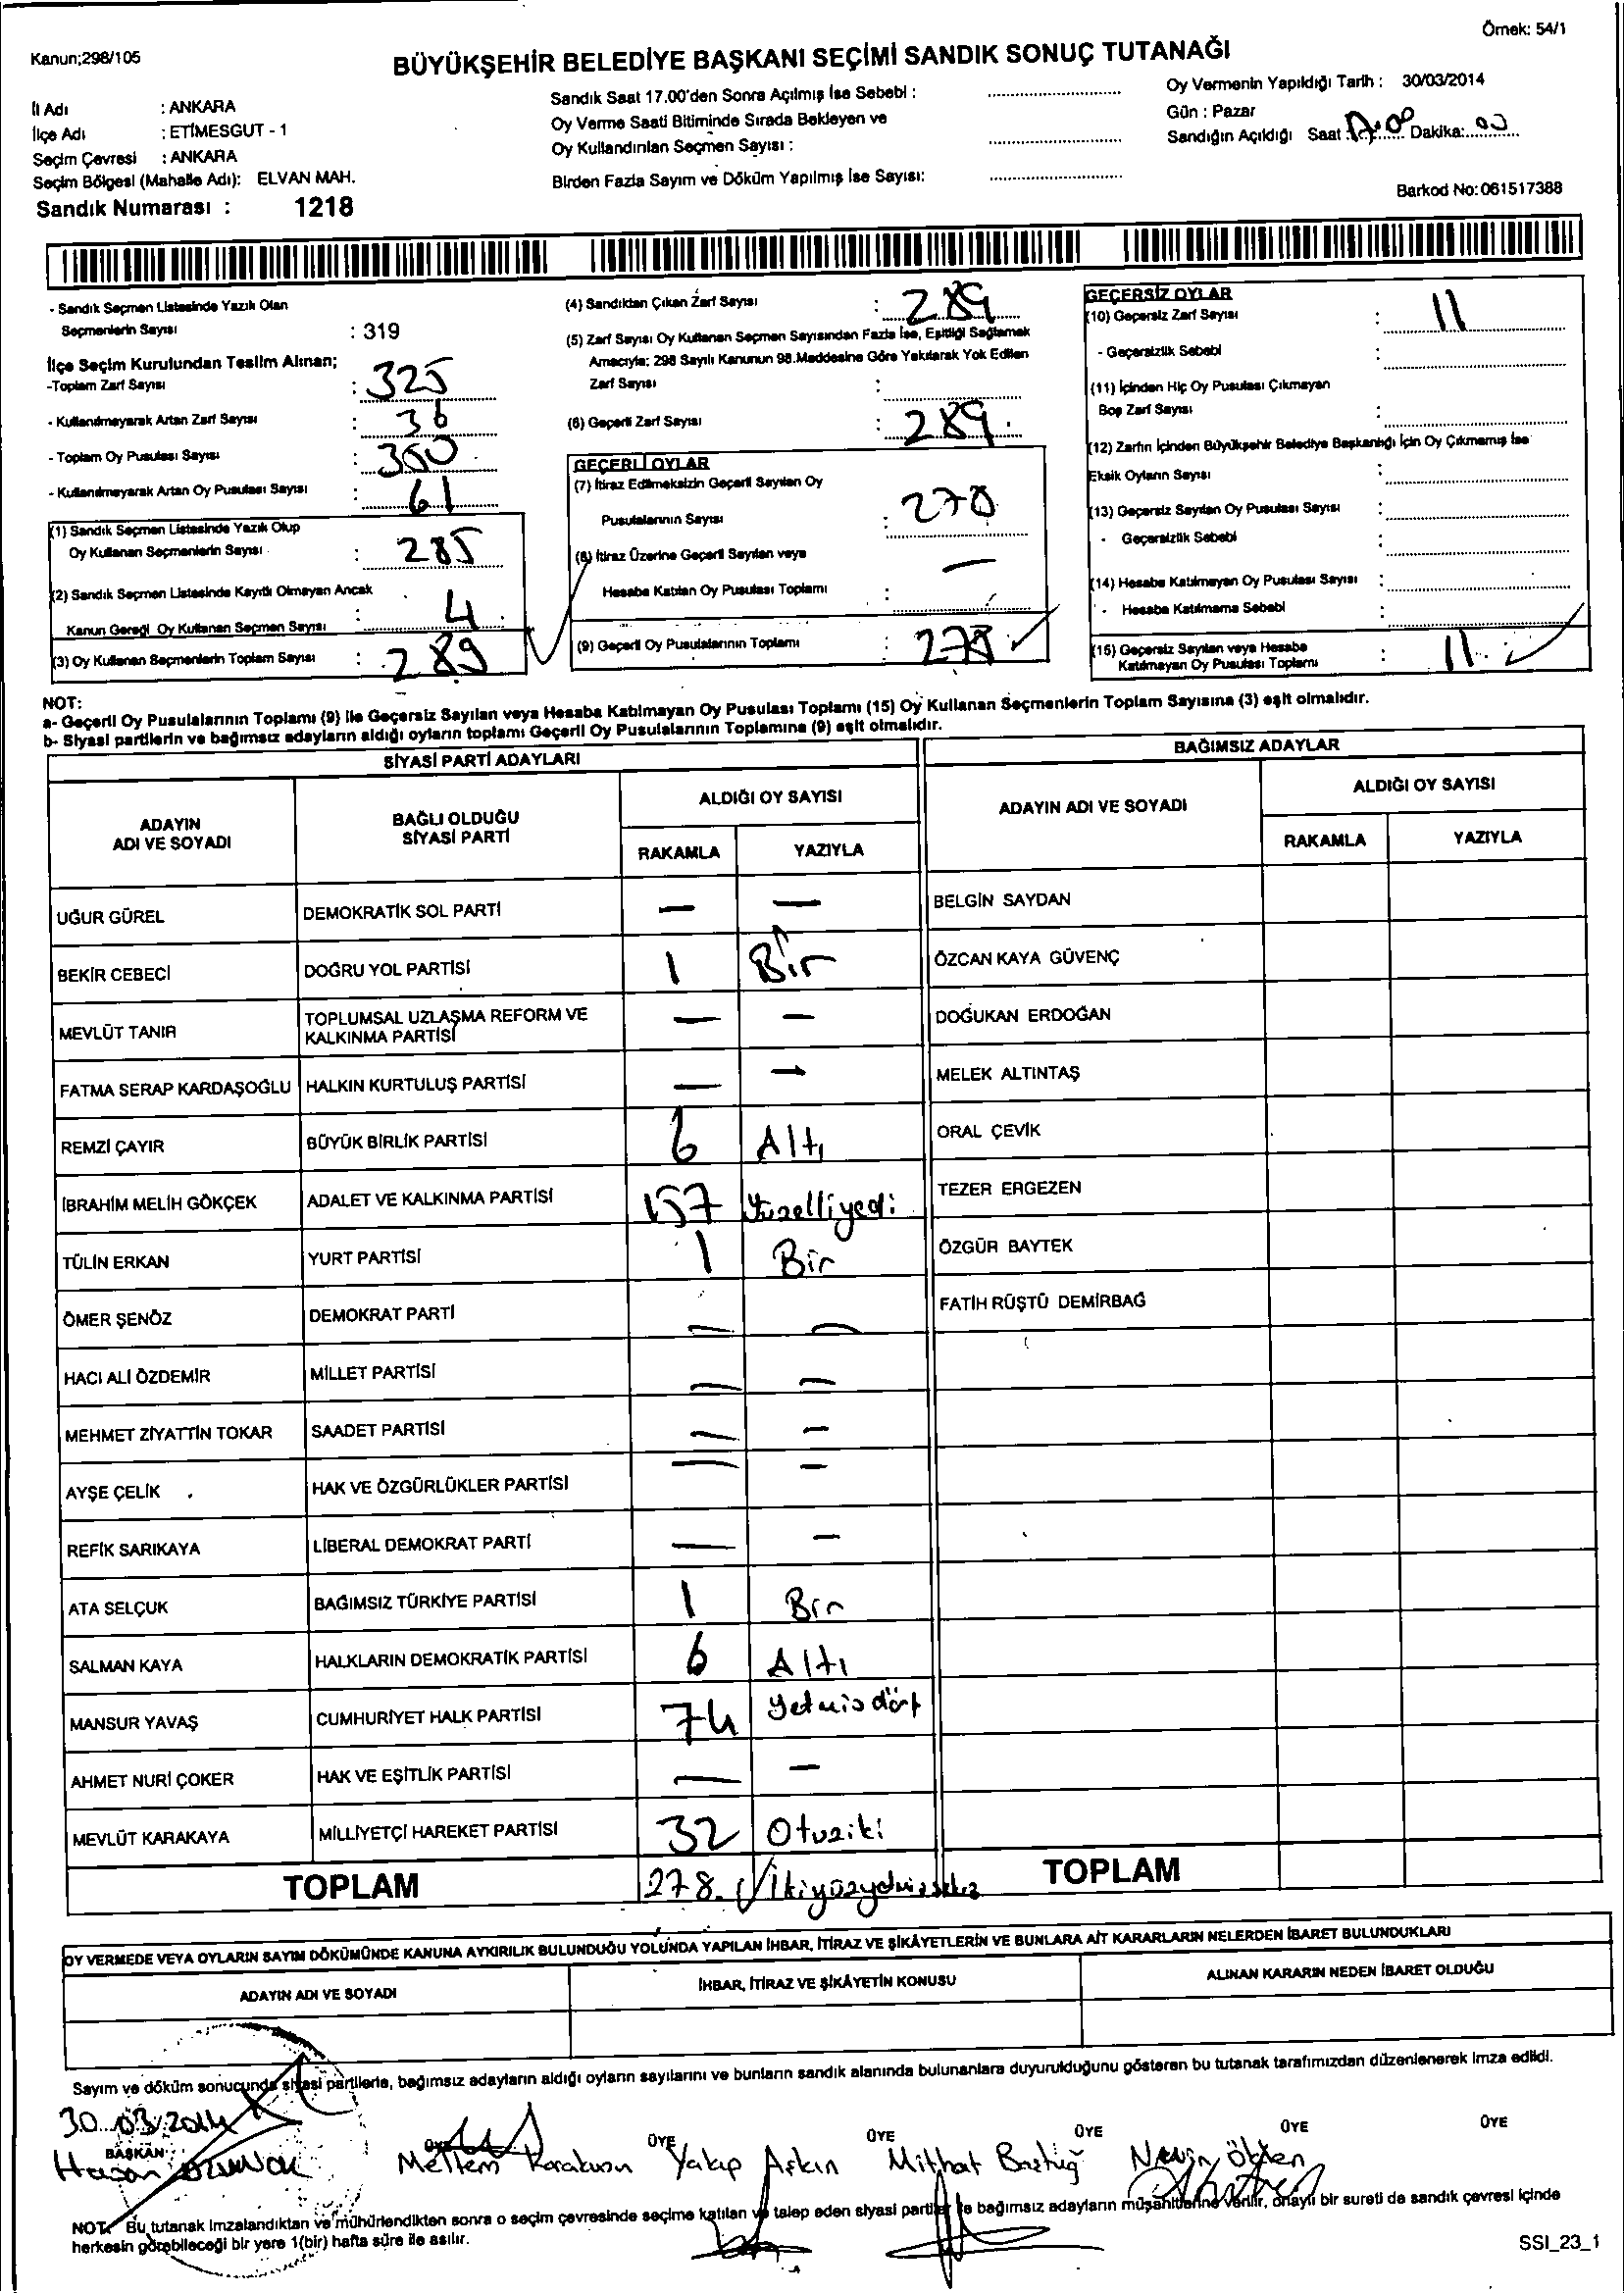 Örnek: 54/1
Kanun;298/105
BÜYÜKŞEHİR BELEDİYE BAŞKANI SEÇİMİ SANDIK SONUÇ TUTANAĞI
İl Adı : ANKARA
İlçe Adı : ETİMESGUT - 1
Seçim Çevresi : ANKARA
Seçim Bölgesi (Mahalle Adı): ELVAN MAH.
Sandık Numarası : 1218
Sandık Saat 17.00'den Sonra Açılmış İse Sebebi :
Oy Verme Saati Bitiminde Sırada Bekleyen ve
Oy Kullandırılan Seçmen Sayısı :
Birden Fazla Sayım ve Döküm Yapılmış İse Sayısı:
Oy Vermenin Yapıldığı Tarih : 30/03/2014
Gün : Pazar
Sandığın Açıldığı Saat 17:00 Dakika: 00
Barkod No: 061517388
- Sandık Seçmen Listesinde Yazılı Olan
Seçmenlerin Sayısı : 319
İlçe Seçim Kurulundan Teslim Alınan;
-Toplam Zarf Sayısı : 325
- Kullanılmayarak Artan Zarf Sayısı : 36
- Toplam Oy Pusulası Sayısı : 350
- Kullanılmayarak Artan Oy Pusulası Sayısı : 61
(1) Sandık Seçmen Listesinde Yazılı Olup
Oy Kullanan Seçmenlerin Sayısı : 285
(2) Sandık Seçmen Listesinde Kayıtlı Olmayan Ancak
Kanun Gereği Oy Kullanan Seçmen Sayısı : 4
(3) Oy Kullanan Seçmenlerin Toplam Sayısı : 289
(4) Sandıktan Çıkan Zarf Sayısı : 289
(5) Zarf Sayısı Oy Kullanan Seçmen Sayısından Fazla İse, Eşitliği Sağlamak
Amacıyla; 298 Sayılı Kanunun 98.Maddesine Göre Yakılarak Yok Edilen
Zarf Sayısı :
(6) Geçerli Zarf Sayısı : 289
GEÇERLİ OYLAR
(7) İtiraz Edilmeksizin Geçerli Sayılan Oy
Pusulalarının Sayısı : 278
(8) İtiraz Üzerine Geçerli Sayılan veya
Hesaba Katılan Oy Pusulası Toplamı : —
(9) Geçerli Oy Pusulalarının Toplamı : 278
GEÇERSİZ OYLAR
(10) Geçersiz Zarf Sayısı : 11
- Geçersizlik Sebebi :
(11) İçinden Hiç Oy Pusulası Çıkmayan
Boş Zarf Sayısı :
(12) Zarfın İçinden Büyükşehir Belediye Başkanlığı İçin Oy Çıkmamış İse
Eksik Oyların Sayısı :
(13) Geçersiz Sayılan Oy Pusulası Sayısı :
- Geçersizlik Sebebi :
(14) Hesaba Katılmayan Oy Pusulası Sayısı :
- Hesaba Katılmama Sebebi :
(15) Geçersiz Sayılan veya Hesaba
Katılmayan Oy Pusulası Toplamı : 11
NOT:
a- Geçerli Oy Pusulalarının Toplamı (9) ile Geçersiz Sayılan veya Hesaba Katılmayan Oy Pusulası Toplamı (15) Oy Kullanan Seçmenlerin Toplam Sayısına (3) eşit olmalıdır.
b- Siyasi partilerin ve bağımsız adayların aldığı oyların toplamı Geçerli Oy Pusulalarının Toplamına (9) eşit olmalıdır.
SİYASİ PARTİ ADAYLARI
ADAYIN ADI VE SOYADI BAĞLI OLDUĞU SİYASİ PARTİ ALDIĞI OY SAYISI
RAKAMLA YAZIYLA
UĞUR GÜREL DEMOKRATİK SOL PARTİ — —
BEKİR CEBECİ DOĞRU YOL PARTİSİ 1 Bir
MEVLÜT TANIR TOPLUMSAL UZLAŞMA REFORM VE KALKINMA PARTİSİ — —
FATMA SERAP KARDAŞOĞLU HALKIN KURTULUŞ PARTİSİ — —
REMZİ ÇAYIR BÜYÜK BİRLİK PARTİSİ 6 Altı
İBRAHİM MELİH GÖKÇEK ADALET VE KALKINMA PARTİSİ 157 Yüzelliyedi
TÜLİN ERKAN YURT PARTİSİ 1 Bir
ÖMER ŞENÖZ DEMOKRAT PARTİ — —
HACI ALİ ÖZDEMİR MİLLET PARTİSİ — —
MEHMET ZİYATTİN TOKAR SAADET PARTİSİ — —
AYŞE ÇELİK HAK VE ÖZGÜRLÜKLER PARTİSİ — —
REFİK SARIKAYA LİBERAL DEMOKRAT PARTİ — —
ATA SELÇUK BAĞIMSIZ TÜRKİYE PARTİSİ 1 Bir
SALMAN KAYA HALKLARIN DEMOKRATİK PARTİSİ 6 Altı
MANSUR YAVAŞ CUMHURİYET HALK PARTİSİ 74 Yetmisdört
AHMET NURİ ÇOKER HAK VE EŞİTLİK PARTİSİ — —
MEVLÜT KARAKAYA MİLLİYETÇİ HAREKET PARTİSİ 32 Otuziki
TOPLAM 278 İkiyüzyetmissekiz
BAĞIMSIZ ADAYLAR
ADAYIN ADI VE SOYADI ALDIĞI OY SAYISI
RAKAMLA YAZIYLA
BELGİN SAYDAN
ÖZCAN KAYA GÜVENÇ
DOĞUKAN ERDOĞAN
MELEK ALTINTAŞ
ORAL ÇEVİK
TEZER ERGEZEN
ÖZGÜR BAYTEK
FATİH RÜŞTÜ DEMİRBAĞ
TOPLAM
OY VERMEDE VEYA OYLARIN SAYIM DÖKÜMÜNDE KANUNA AYKIRILIK BULUNDUĞU YOLUNDA YAPILAN İHBAR, İTİRAZ VE ŞİKÂYETLERİN VE BUNLARA AİT KARARLARIN NELERDEN İBARET BULUNDUKLARI
ADAYIN ADI VE SOYADI İHBAR, İTİRAZ VE ŞİKÂYETİN KONUSU ALINAN KARARIN NEDEN İBARET OLDUĞU
Sayım ve döküm sonucunda siyasi partilerle, bağımsız adayların aldığı oyların sayılarını ve bunların sandık alanında bulunanlara duyurulduğunu gösteren bu tutanak tarafımızdan düzenlenerek imza edildi.
30.03.2014
BAŞKAN ÜYE ÜYE ÜYE ÜYE ÜYE ÜYE
Hasan Meltem Karakurun Yakup Aşkın Mithat Baştuğ Nevin Ökten
NOT: Bu tutanak imzalandıktan ve mühürlendikten sonra o seçim çevresinde seçime katılan ve talep eden siyasi partiler ile bağımsız adayların müşahitlerine verilir, onaylı bir sureti de sandık çevresi içinde
herkesin görebileceği bir yere 1(bir) hafta süre ile asılır.
SSI_23_1